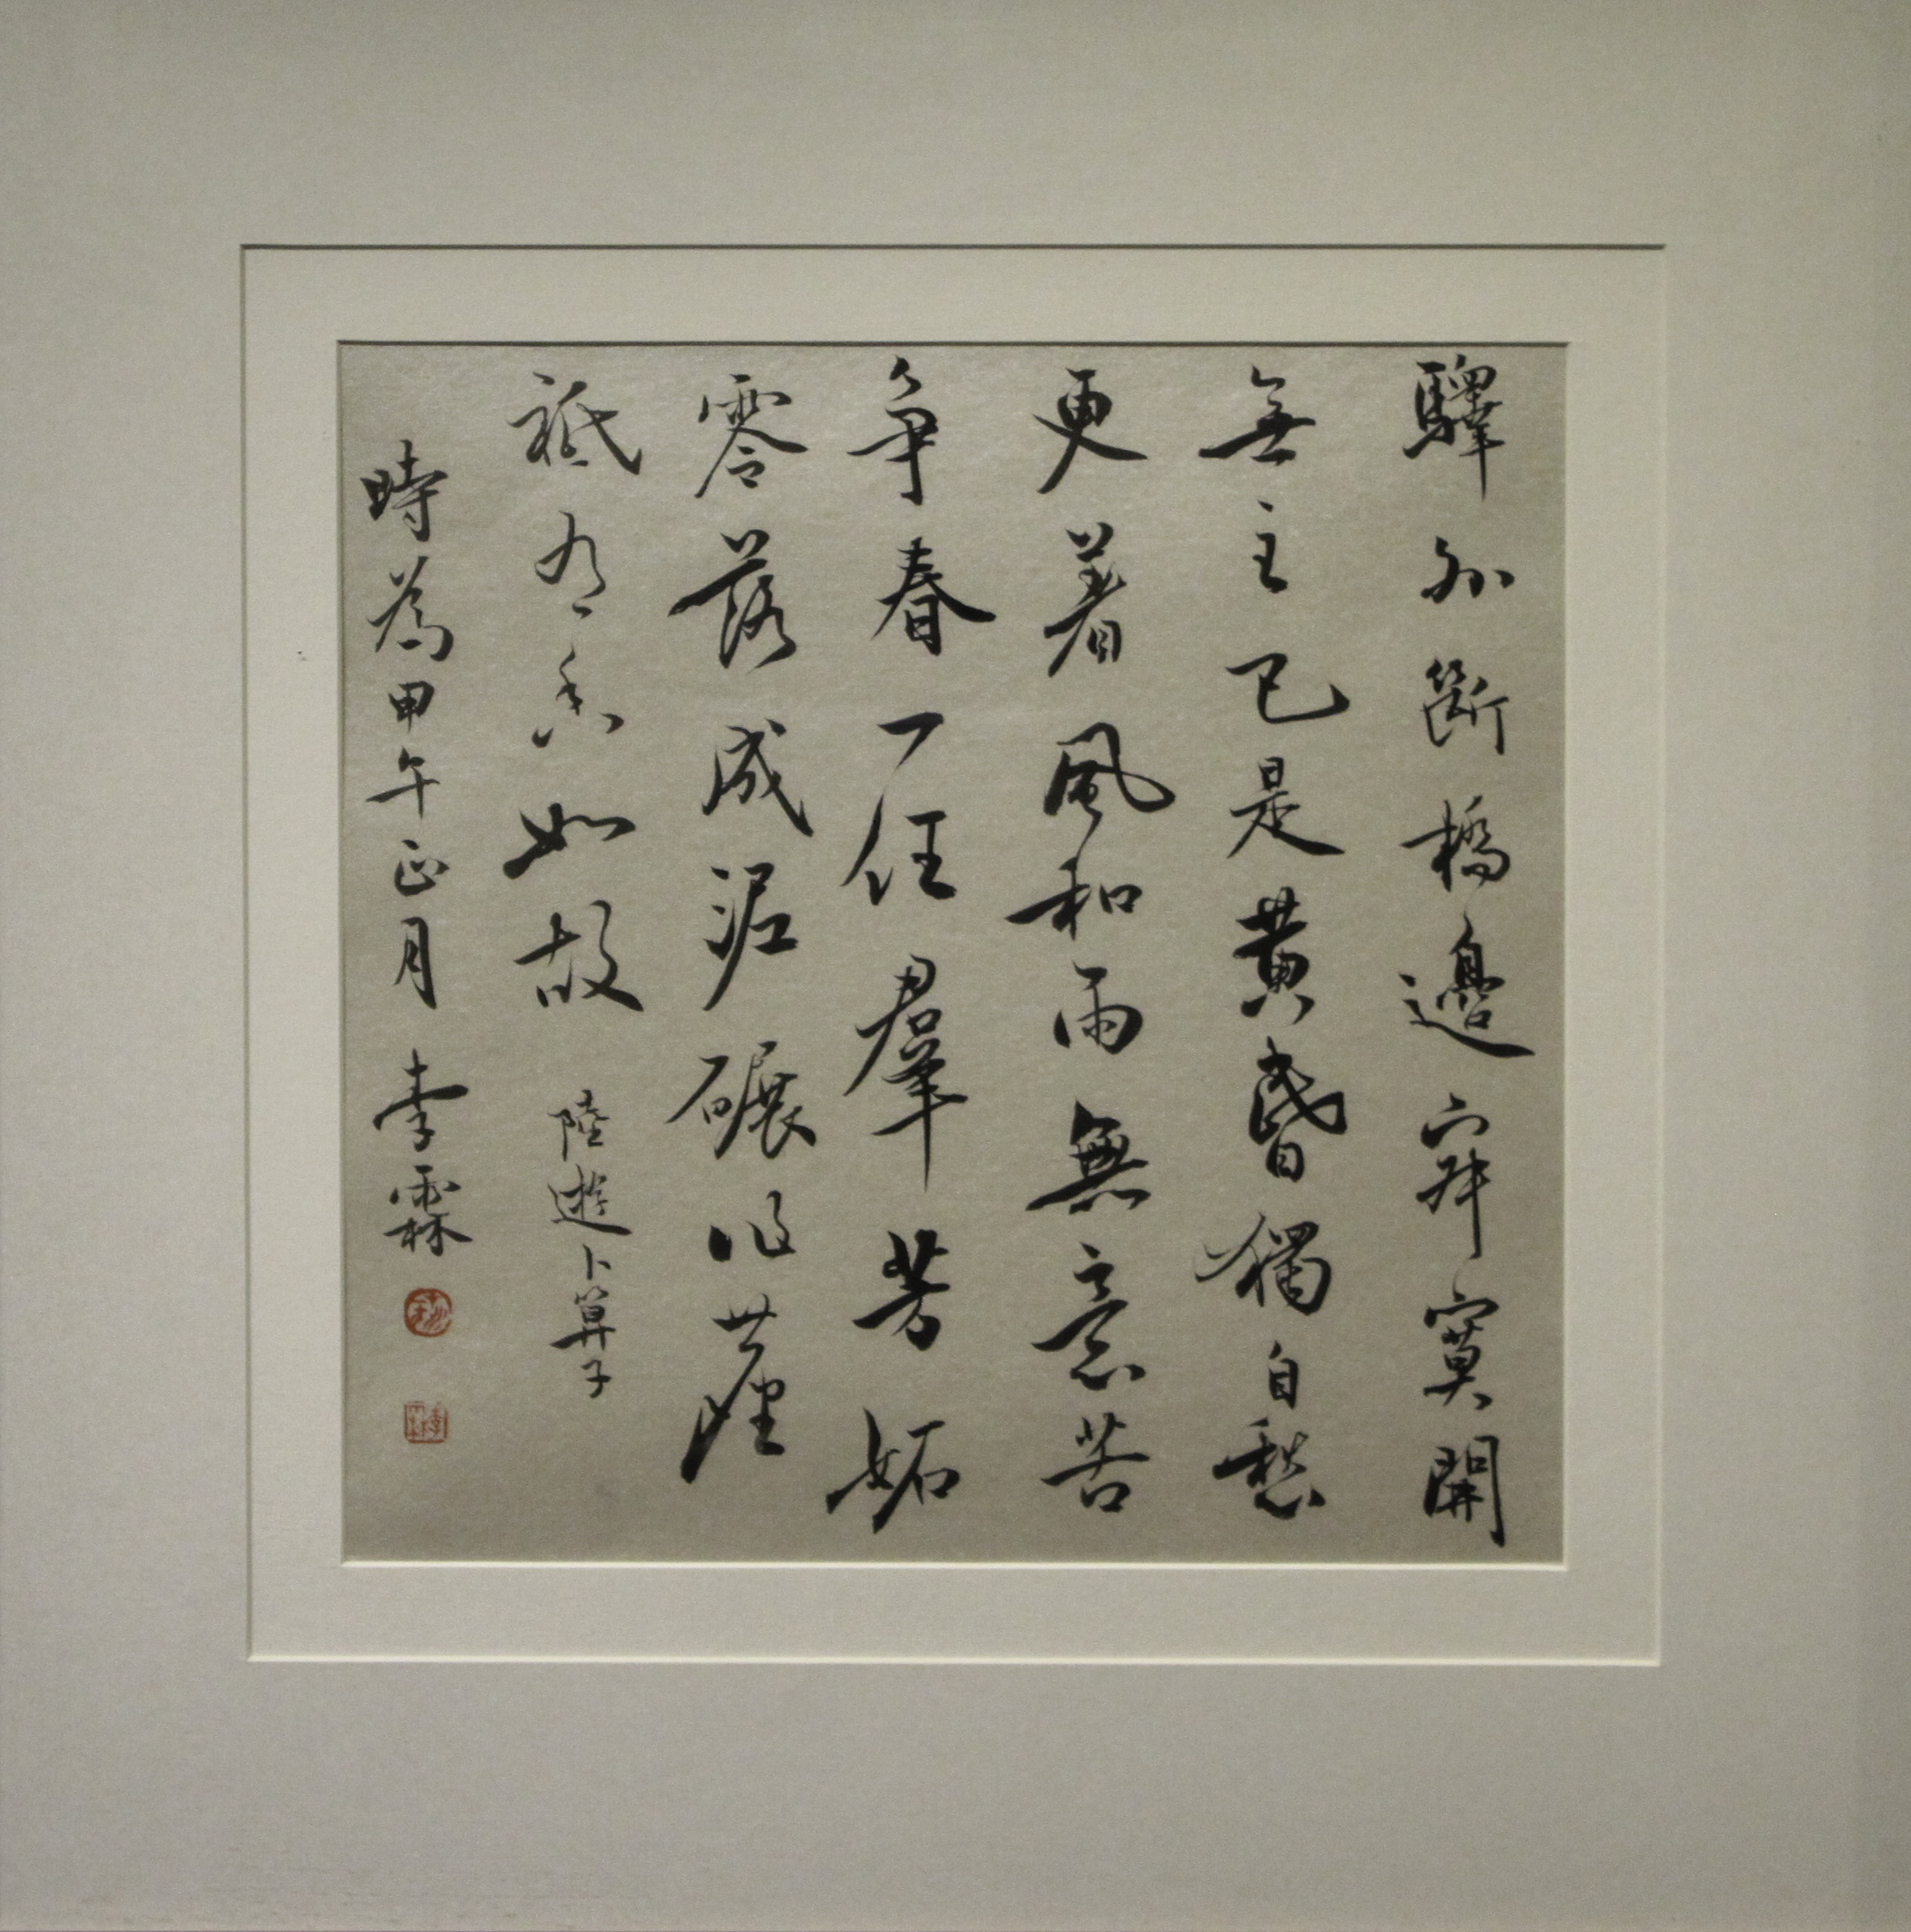 驛外斷橋邊寂寞開
無主已是黄昏獨自愁
更着風和雨無意苦
争春一任羣芳妬
零落成泥碾作塵
祗有香如故 陸遊卜算子
時為甲午正月 李霖